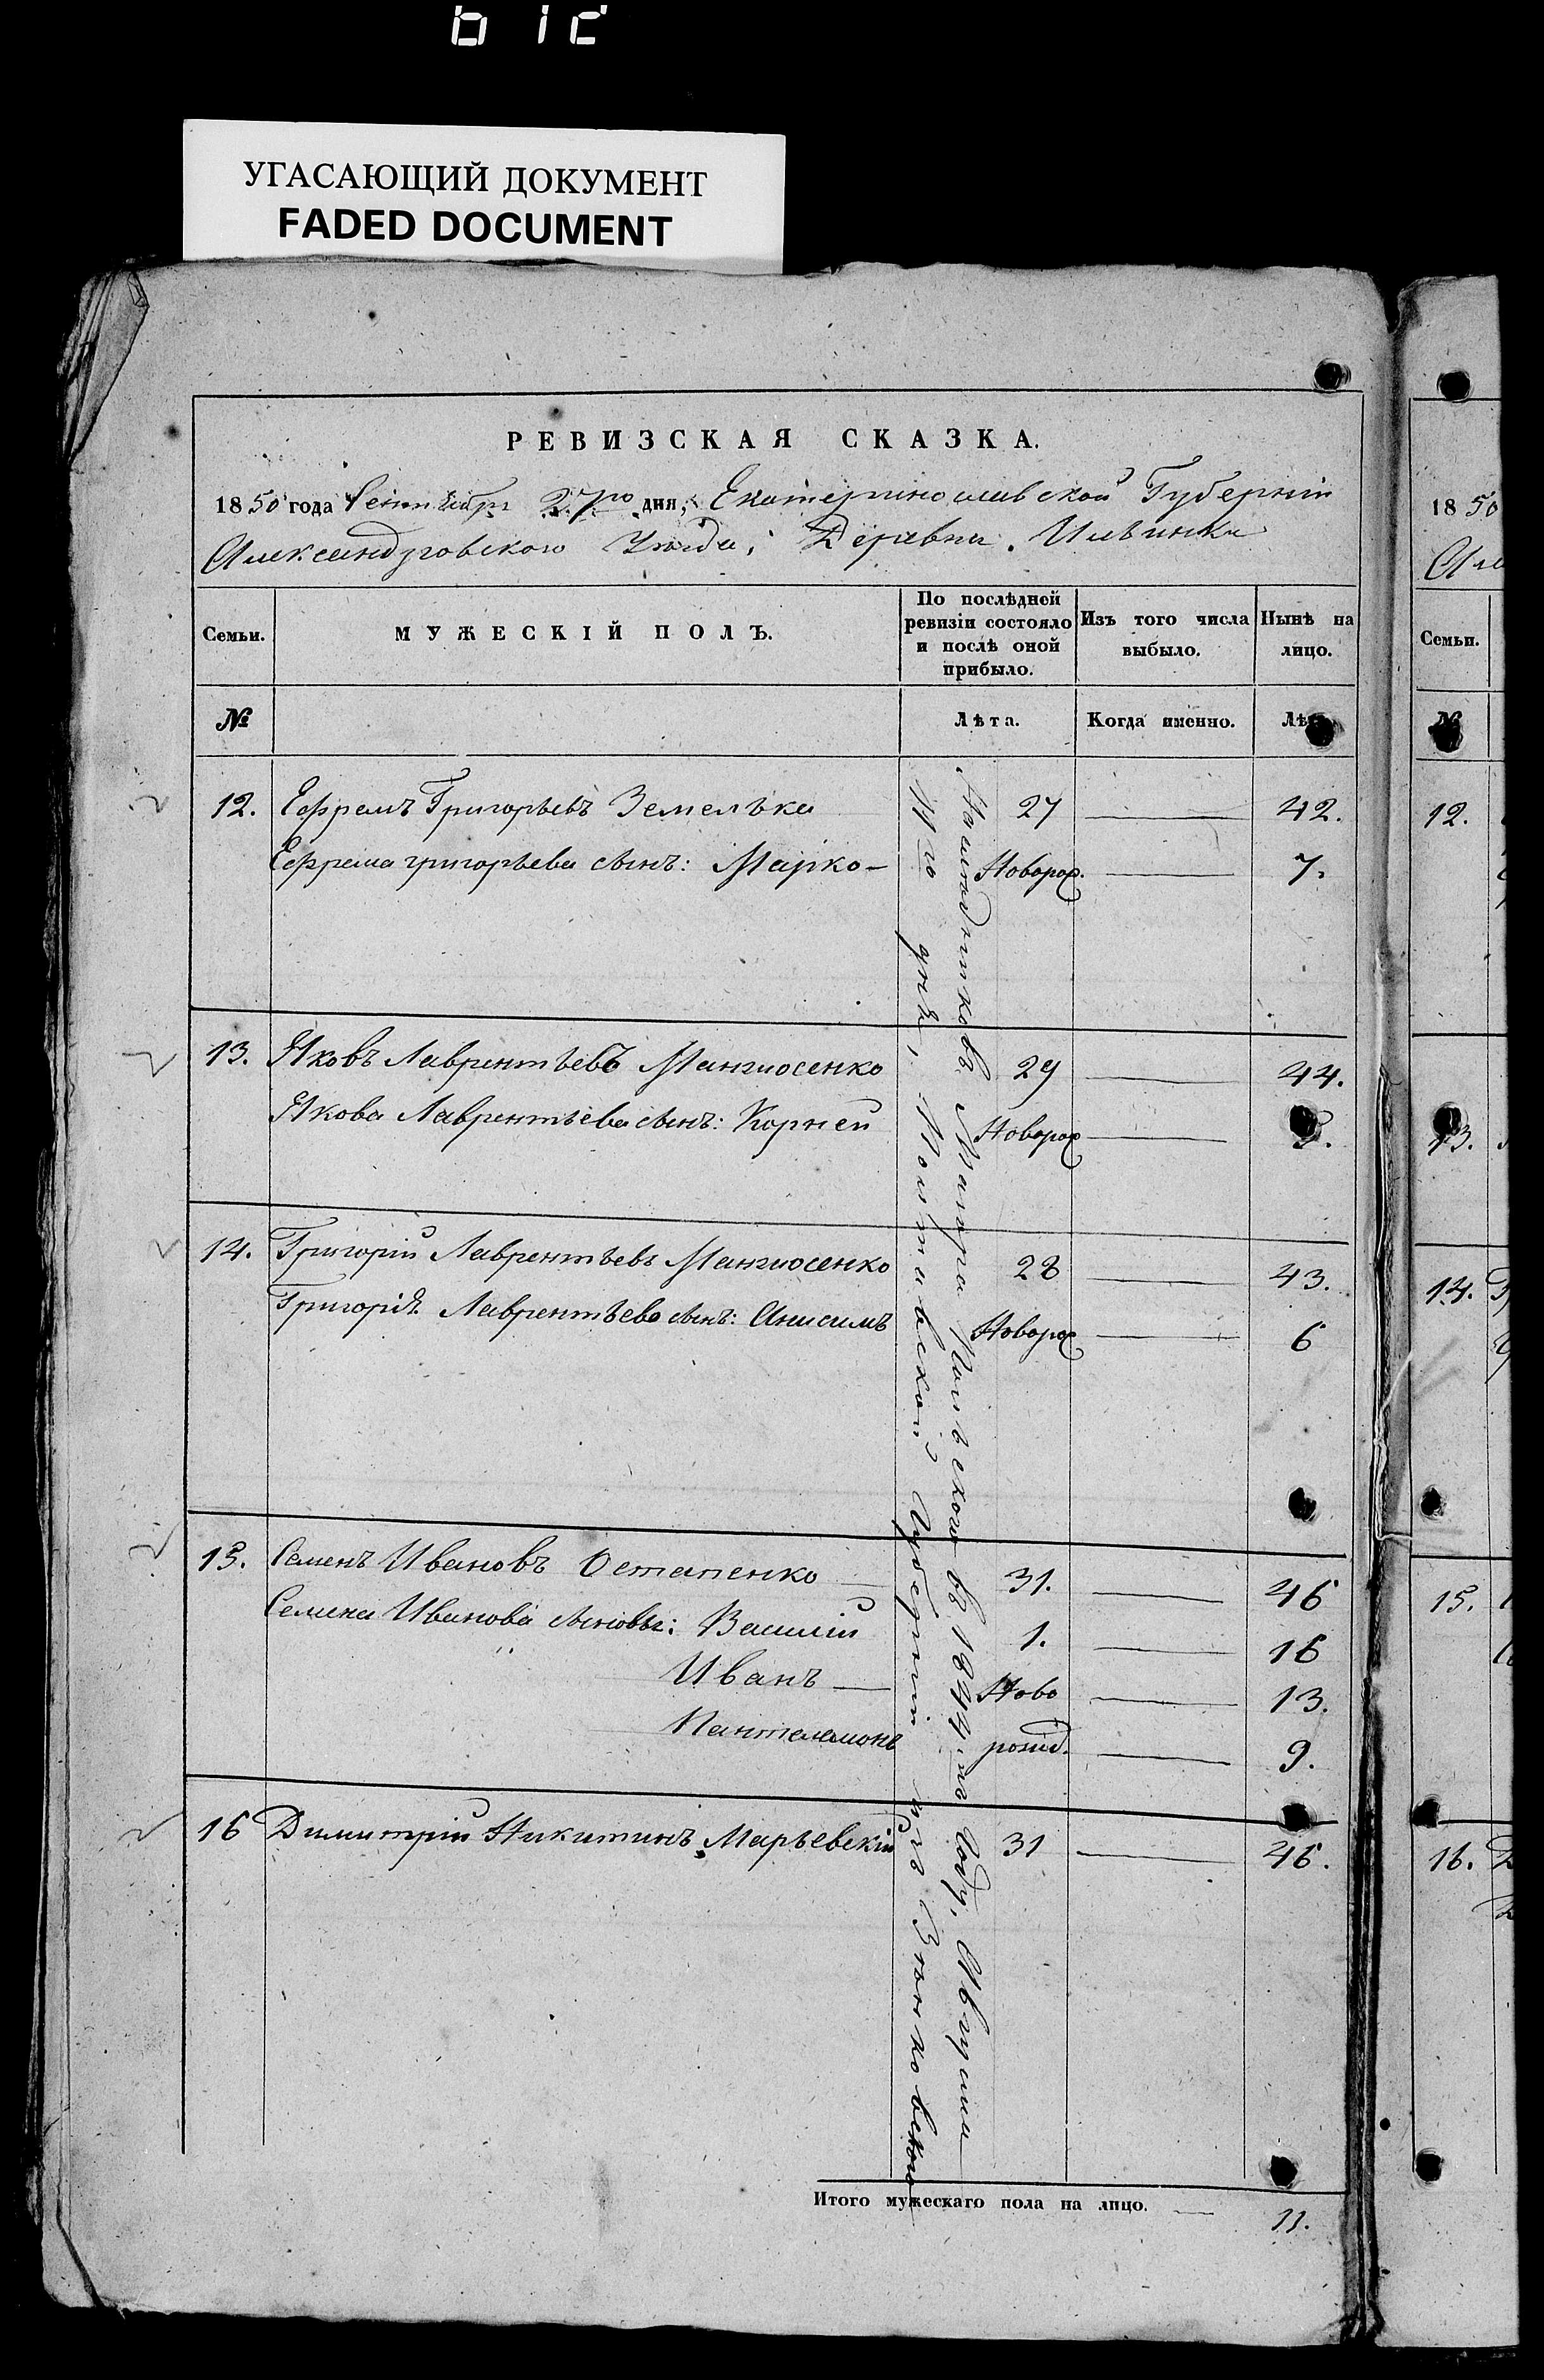 УГАСАЮЩИЙ ДОКУМЕНТ
FADED DOCUMENT
РЕВИЗСКАЯ СКАЗКА.
1850 года Сентября 27го дня, Екатеринославской Губернiи
Александровского Уѣзда, Деревня Ильинка
Семьи.
МУЖЕСКIЙ ПОЛЪ.
По послѣдней ревизiи состояло и послѣ оной прибыло.
Изъ того числа выбыло.
Нынѣ на лицо.
№
Лѣта.
Когда именно.
12. Ефремъ Григорьевъ Земелька 27 42.
Ефрема григорьева сынъ: Марко Новорож. 7.
13. Яковъ Лаврентьевъ 29 44.
Якова Лаврентьева сынъ: Корней Новорож
14. Григорiй Лаврентьевъ 28 43.
Григорiя Лаврентьева сынъ: Анисимъ Новорож 6
15. Семенъ Ивановъ Остапенко 31. 46
Семена Иванова сыновья: Василiй 1. 16
Иванъ Ново 13.
Пантелемонъ рожд. 9.
16 Димитрiй Никитинъ Марьевскiй 31 46.
въ 1844мъ Году, Августа
11го дня, Полтавской Губернiи изъ Зѣньковского
Итого мужескаго пола на лицо. 11.
1850
Семьи.
№
12.
13.
14.
15.
16.